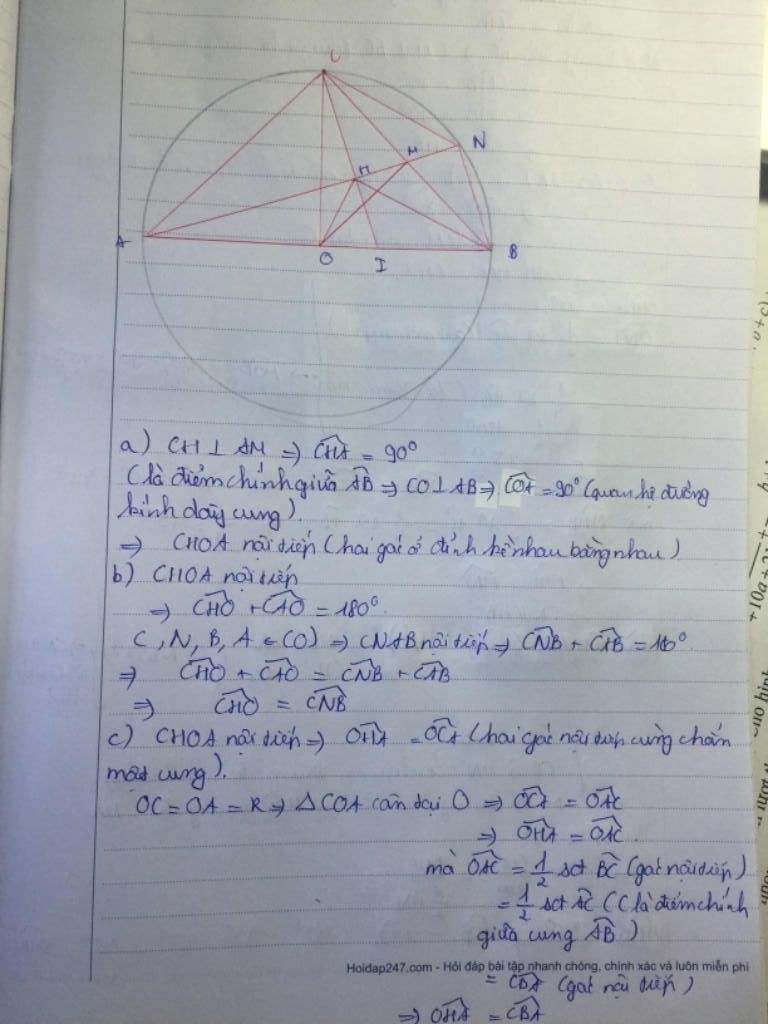 C
N
M
H
A
O
I
B
a) CH ⊥ AM ⇒ CHA = 90°
C là điểm chính giữa AB ⇒ CO ⊥ AB ⇒ COA = 90° (quan hệ đường
kính dây cung).
⇒ CHOA nội tiếp (hai góc ở đỉnh kề nhau bằng nhau)
b) CHOA nội tiếp
⇒ CHO + CAO = 180°.
C, N, B, A ∈ (O) ⇒ CNAB nội tiếp ⇒ CNB + CAB = 180°
⇒ CHO + CAO = CNB + CAB
⇒ CHO = CNB
c) CHOA nội tiếp ⇒ OHA = OCA (hai góc nội tiếp cùng chắn
một cung).
OC = OA = R ⇒ △COA cân tại O ⇒ OCA = OAC
⇒ OHA = OAC
mà OAC = 1/2 sđ BC (góc nội tiếp)
= 1/2 sđ AC (C là điểm chính
giữa cung AB)
Hoidap247.com - Hỏi đáp bài tập nhanh chóng, chính xác và luôn miễn phí
= CBA (góc nội tiếp)
⇒ OHA = CBA